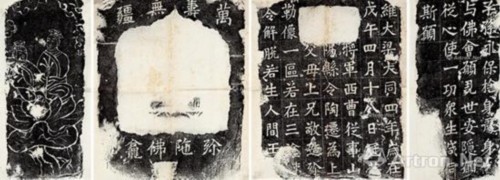 萬壽無疆
弥陁佛龕
維大梁大同四年歲在
戊午四月十八日
將軍西曹從事山
陽縣令陶遷為上
父母上兄敬造弥
勒像一區若在三
令解脫若生人間王
與佛會願亂世安隱
從心使一功眾生咸信
斯願
Artron.Net